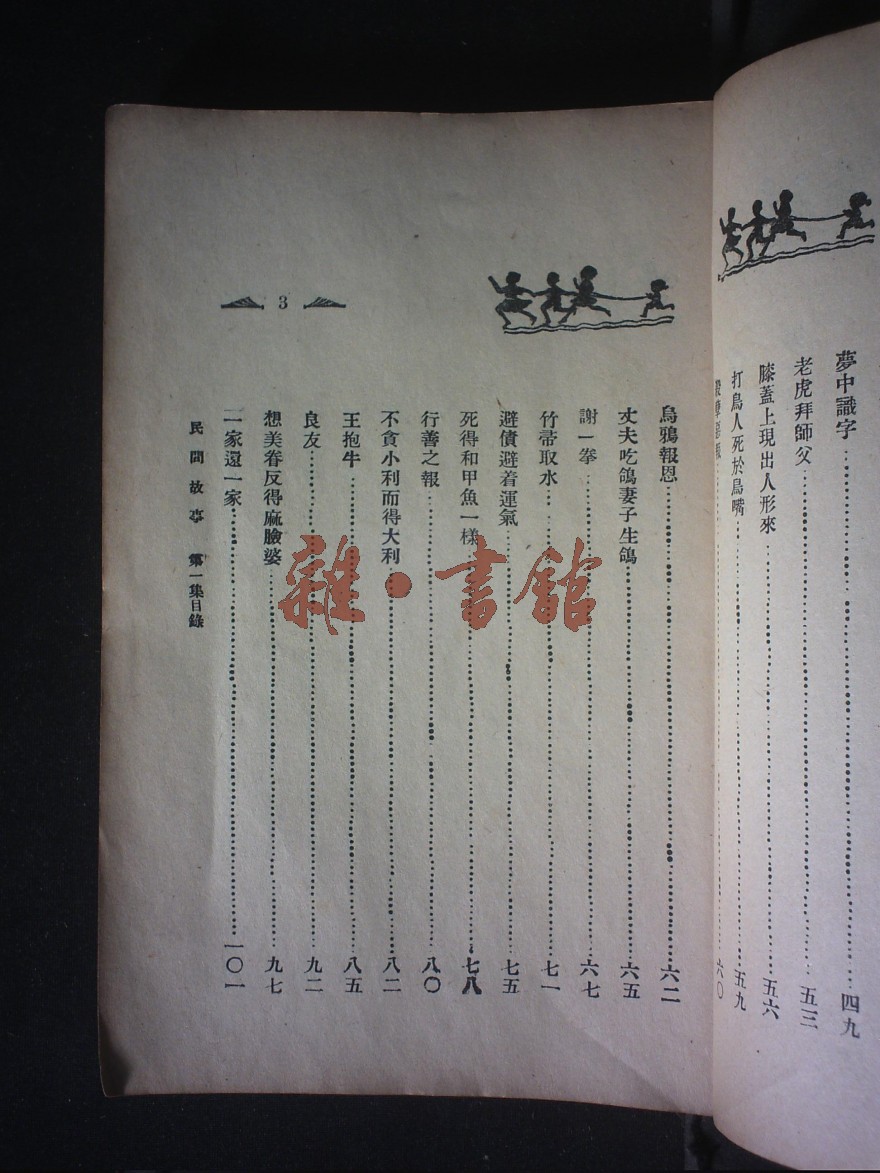 夢中識字 四九
老虎拜師父 五三
膝蓋上現出人形來 五六
打鳥人死於鳥嘴 五九
六〇
3
烏鴉報恩 六二
丈夫吃鴿妻子生鴿 六五
謝一拳 六七
竹帚取水 七一
避債避着運氣 七五
死得和甲魚一樣 七八
行善之報 八〇
不貪小利而得大利 八二
王抱牛 八五
良友 九二
想美眷反得麻臉婆 九七
二家還一家 一〇一
民間故事 第一集目錄
雜·書館